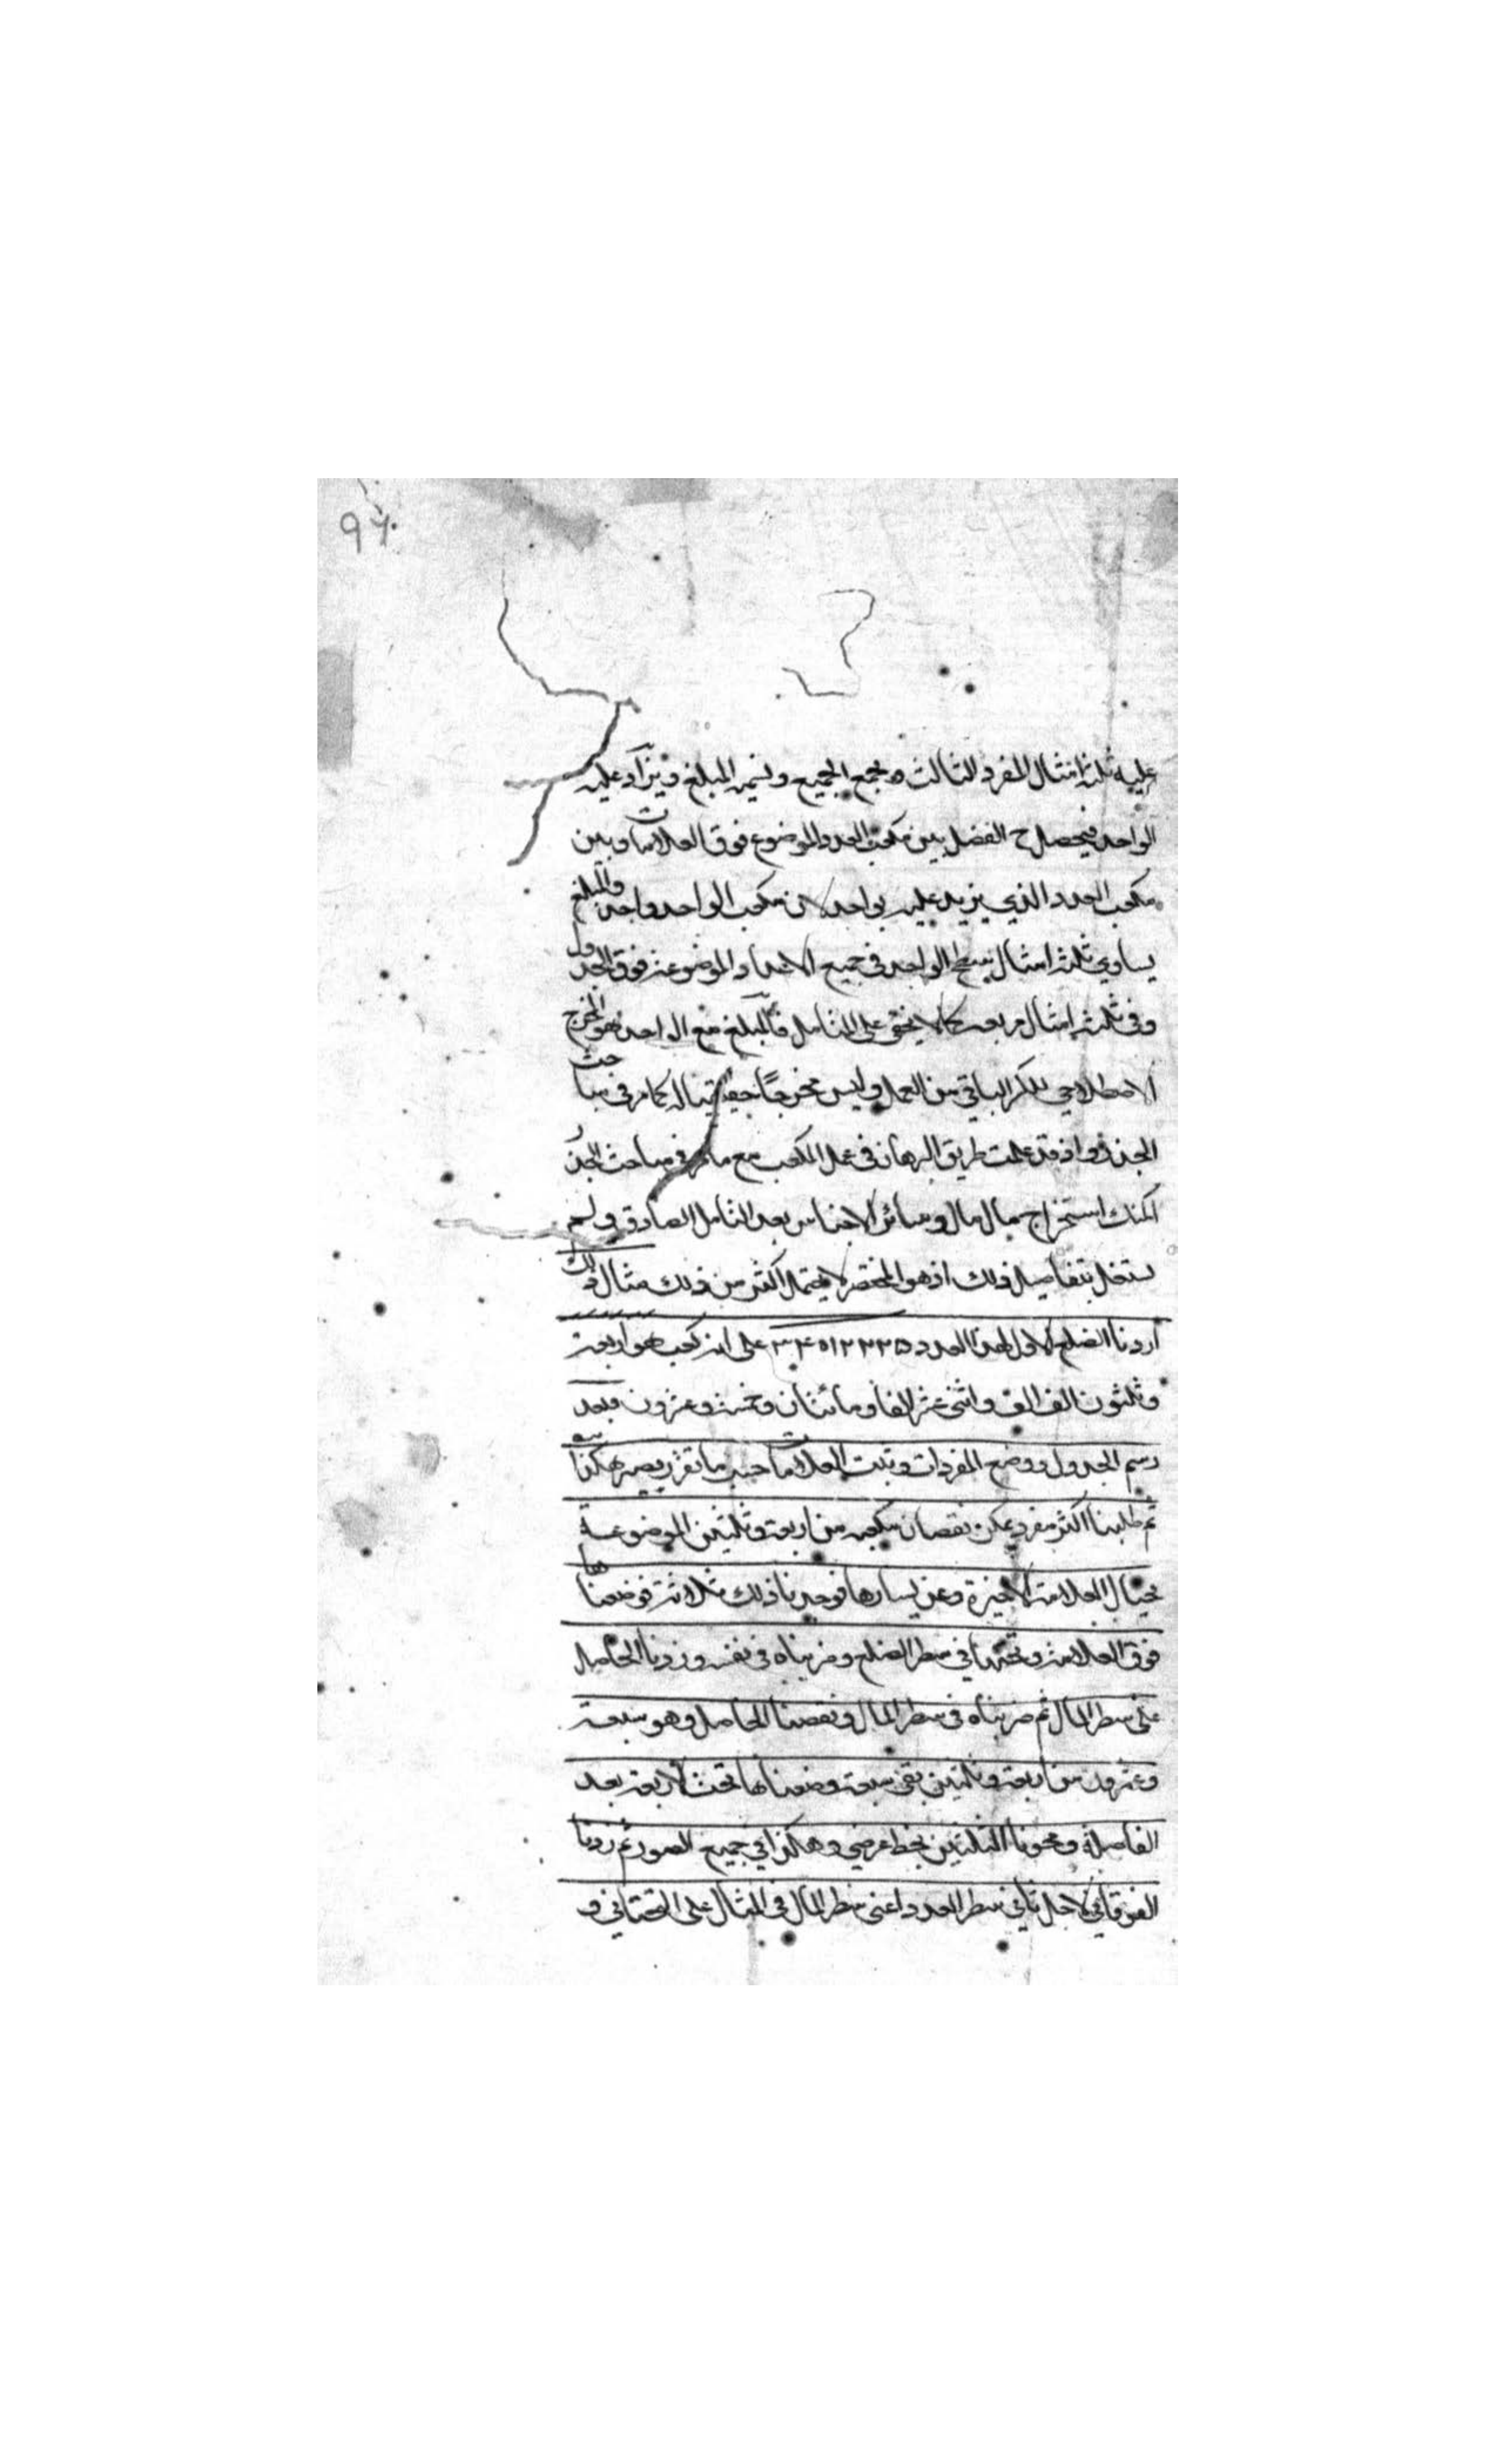 ٩٧
عليه ثلثة امثال المفرد الثالث ويجمع الجميع ونسميه المبلغ ويزاد عليه
الواحد فيحصل ح الفضل بين مكعب العدد الموضوع فوق العلامات وبين
مكعب العدد الذي يزيد عليه بواحد لان مكعب الواحد واحد والمبلغ
يساوي ثلثة امثال سطح الواحد في جميع الاعداد الموضوعة فوق الجدول
وفي ثلثة امثال مربعه كما لا يخفى على المتامل فالمبلغ مع الواحد هو المخرج
الاصطلاحي للكسر الباقي من العمل وليس مخرجًا حقيقيا له كما مر في مباحث
الجذر واذ قد علمت طريق البرهان في عمل المكعب مع ما مر في مباحث الجذر
امكنك استخراج مال مال وسائر الاجناس بعد التامل الصادق ولم
نستغل بتفاصيل ذلك اذ هو المختصر لا يحتمل اكثر من ذلك مثال ذلك
اردنا الضلع الاول لهذا العدد على انه كعب هو اربعة
وثلثون الف الف واثنى عشر الفا ومائتان وخمسة وعشرون فبعد
رسم الجدول ووضع المفردات وتثبت العلامات حسب ما تقرر يصير هكذا
ثم طلبنا اكثر مفرد يمكن نقصان مكعبه من اربعة وثلثين الموضوعة
بحيال العلامة الاخيرة وعن يسارها فوجدنا ذلك ثلاثة فوضعناها
فوق العلامة وتحتها في سطر الضلع وضربناه في نفسه وزدنا الحاصل
على سطر المال ثم ضربناه في سطر المال ونقصنا الحاصل وهو سبعة
وعشرون من اربعة وثلثين بقي سبعة وضعناها تحت الاربعة بعد
الفاصلة ومحونا الثلثين بخط عرضي وهكذا في جميع الصور ثم زدنا
الفوقاني لاجل ثاني سطر العدد اعني سطر المال في المثال على التحتاني و